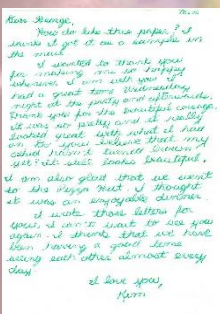 Dear George,
How do like this paper? I
think I got it as a sample in
the mail.
I wanted to thank you
for making me so happy
whenever I am with you. I
had a great time Wednesday
night at the party and afterwards.
Thank you for the beautiful corsage.
It was so pretty and it really
looked great with what I had
on. Do you believe that my
hasn't turned brown
yet? It still looks beautiful.
I am also glad that we went
to the Pizza Hut. I thought
it was an enjoyable dinner.
I wrote those letters for
you. I can't wait to see you
again. I think that we have
been having a good time
seeing each other almost every
day!
I love you,
Kim